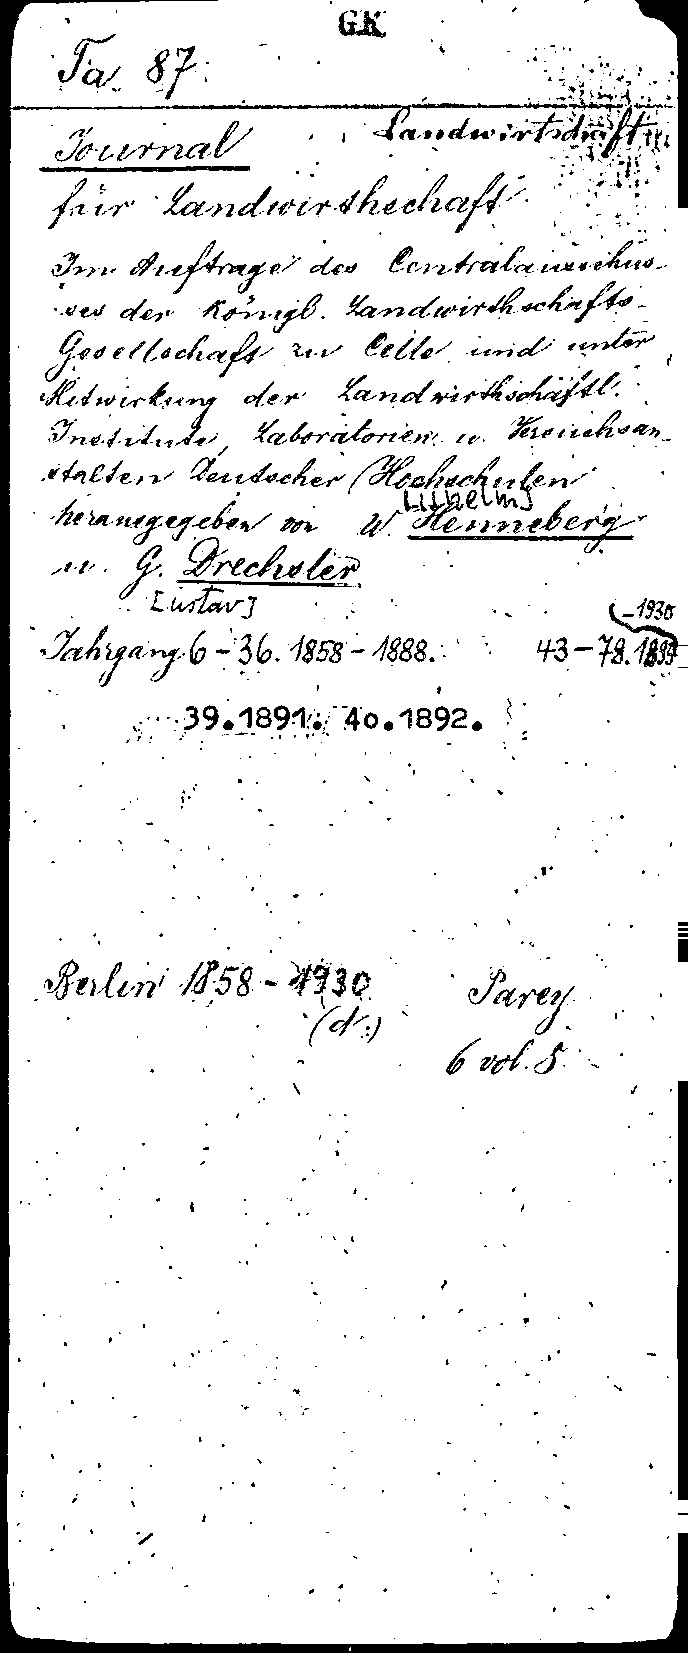 GK
Ta. 87.
Landwirtschaft
Journal
für Landwirthschaft
Im Auftrage des Centralausschus-
ses der Königl. Landwirthschafts-
Gesellschaft zu Celle und unter
Mitwirkung der Landwirthschaftl.
Institute, Laboratorien u. Versuchsan-
stalten Deutscher Hochschulen
[ilhelm]
herausgegeben von W. Henneberg
u. G. Drechsler
[ustav]
-1930
Jahrgang 6-36. 1858-1888. 43-78.
39.1891. 40.1892.
Berlin 1858-1930 Parey
(d.)
6 vol. 8.